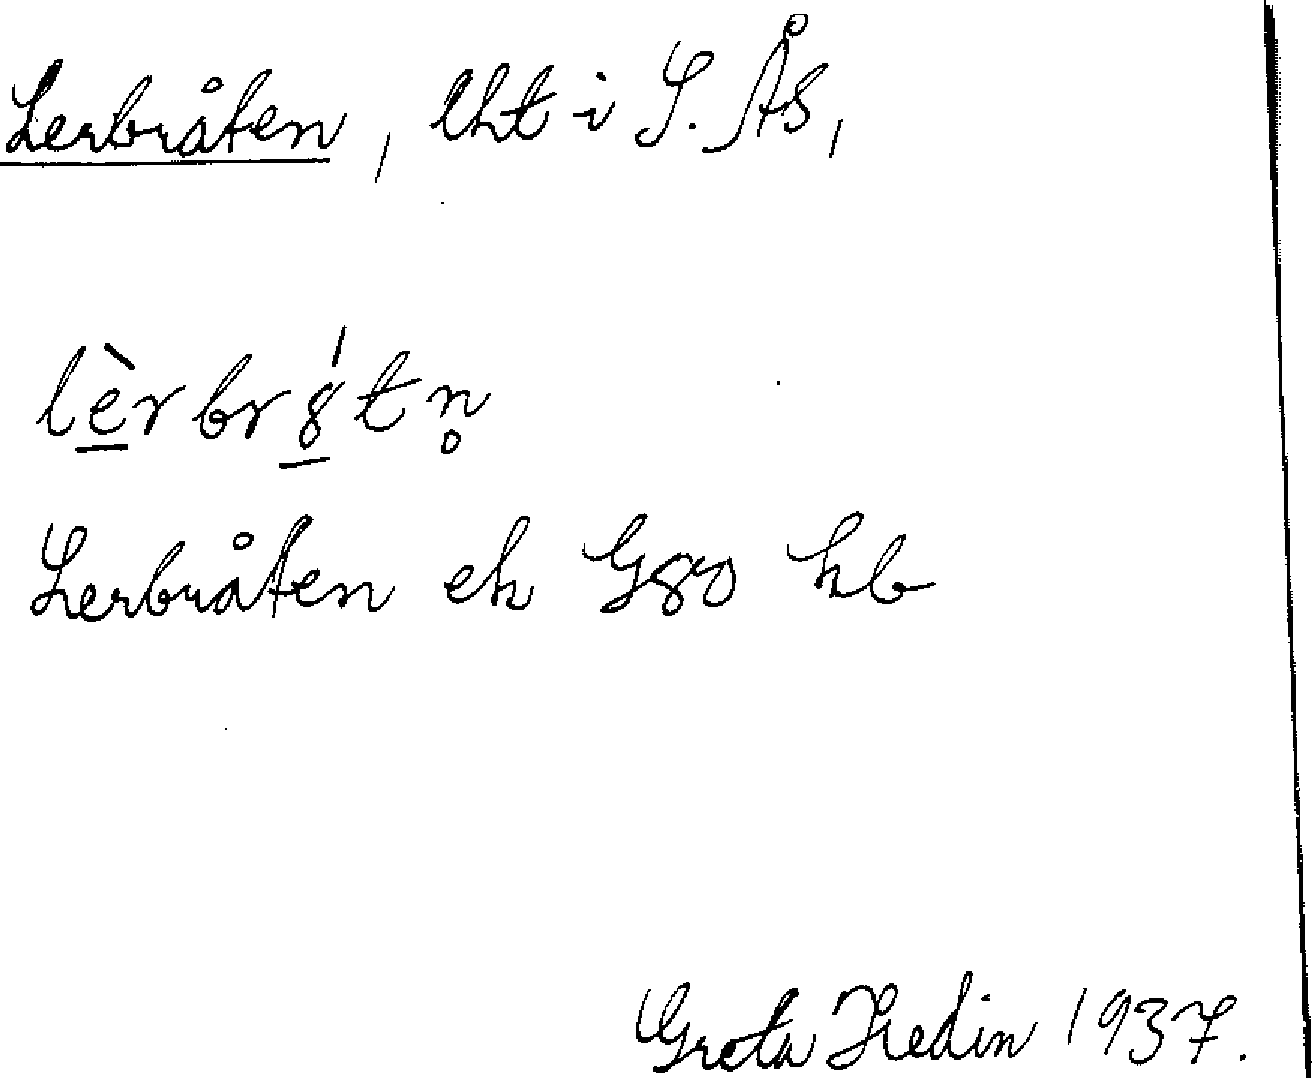 Lerbråten, lht i S. Ås,
lèrbrǻtn̥
Lerbråten ek Gso hb
Greta Hedin 1937.